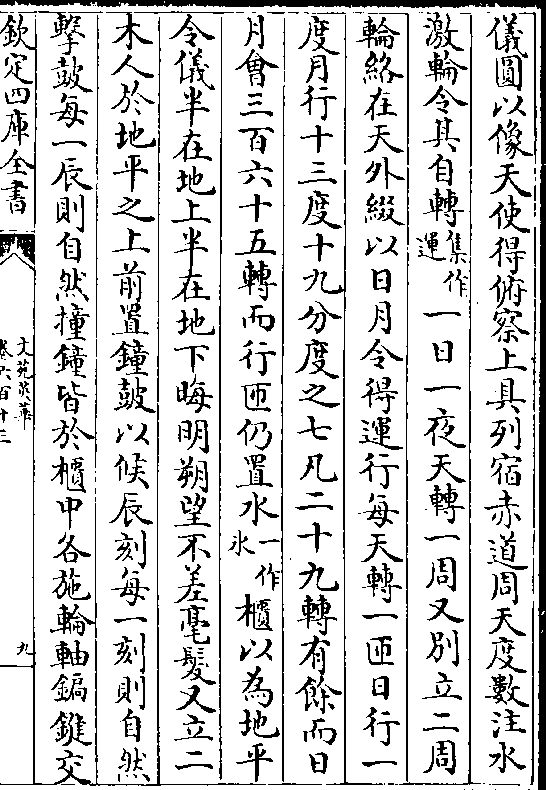 儀圓以像天使得俯察上具列宿赤道周天度數注水
激輪令其自轉集作運一日一夜天轉一周又別立二周
輪絡在天外綴以日月令得運行每天轉一匝日行一
度月行十三度十九分度之七凡二十九轉有餘而日
月會三百六十五轉而行匝仍置水一作氷櫃以為地平
令儀半在地上半在地下晦明朔望不差毫髮又立二
木人於地平之上前置鐘鼓以候辰刻每一刻則自然
擊鼓每一辰則自然撞鐘皆於櫃中各施輪軸鍧鏙交
欽定四庫全書
文苑英華
卷六百十三
九